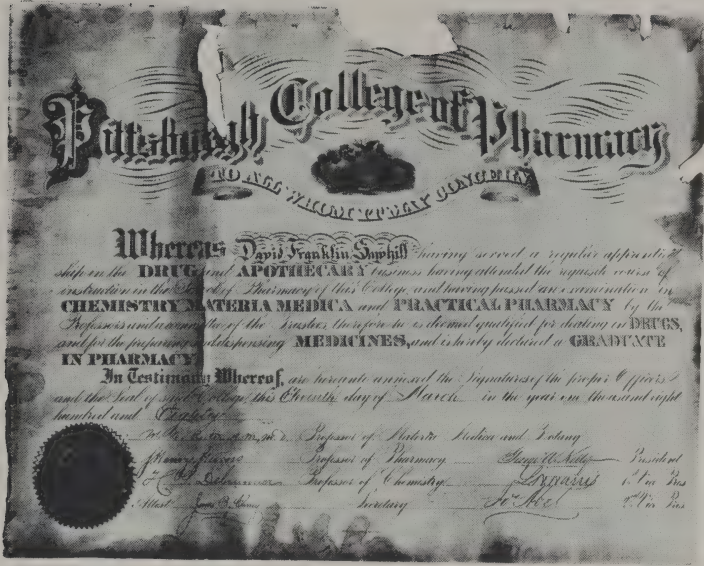 Pittsburgh College of Pharmacy
TO ALL WHOM IT MAY CONCERN
Whereas David Franklin Sawhill having served a regular apprentice
ship in the DRUG and APOTHECARY business having attended the requisite course of
instruction in the School of Pharmacy of this College, and having passed an examination in
CHEMISTRY, MATERIA MEDICA and PRACTICAL PHARMACY by the
Professors and a committee of the Trustees therefore he is deemed qualified for dealing in DRUGS,
and for the preparing and dispensing MEDICINES, and is hereby declared a GRADUATE
IN PHARMACY.
In Testimony Whereof, are hereunto annexed the Signatures of the proper Officers
and the Seal of said College this day of March in the year one thousand eight
hundred and Eighty
Professor of Materia Medica and Botany
Professor of Pharmacy George A. Kelly President
Professor of Chemistry 1st Vice Pres
Attest Secretary Jos Abel 2nd Vice Pres